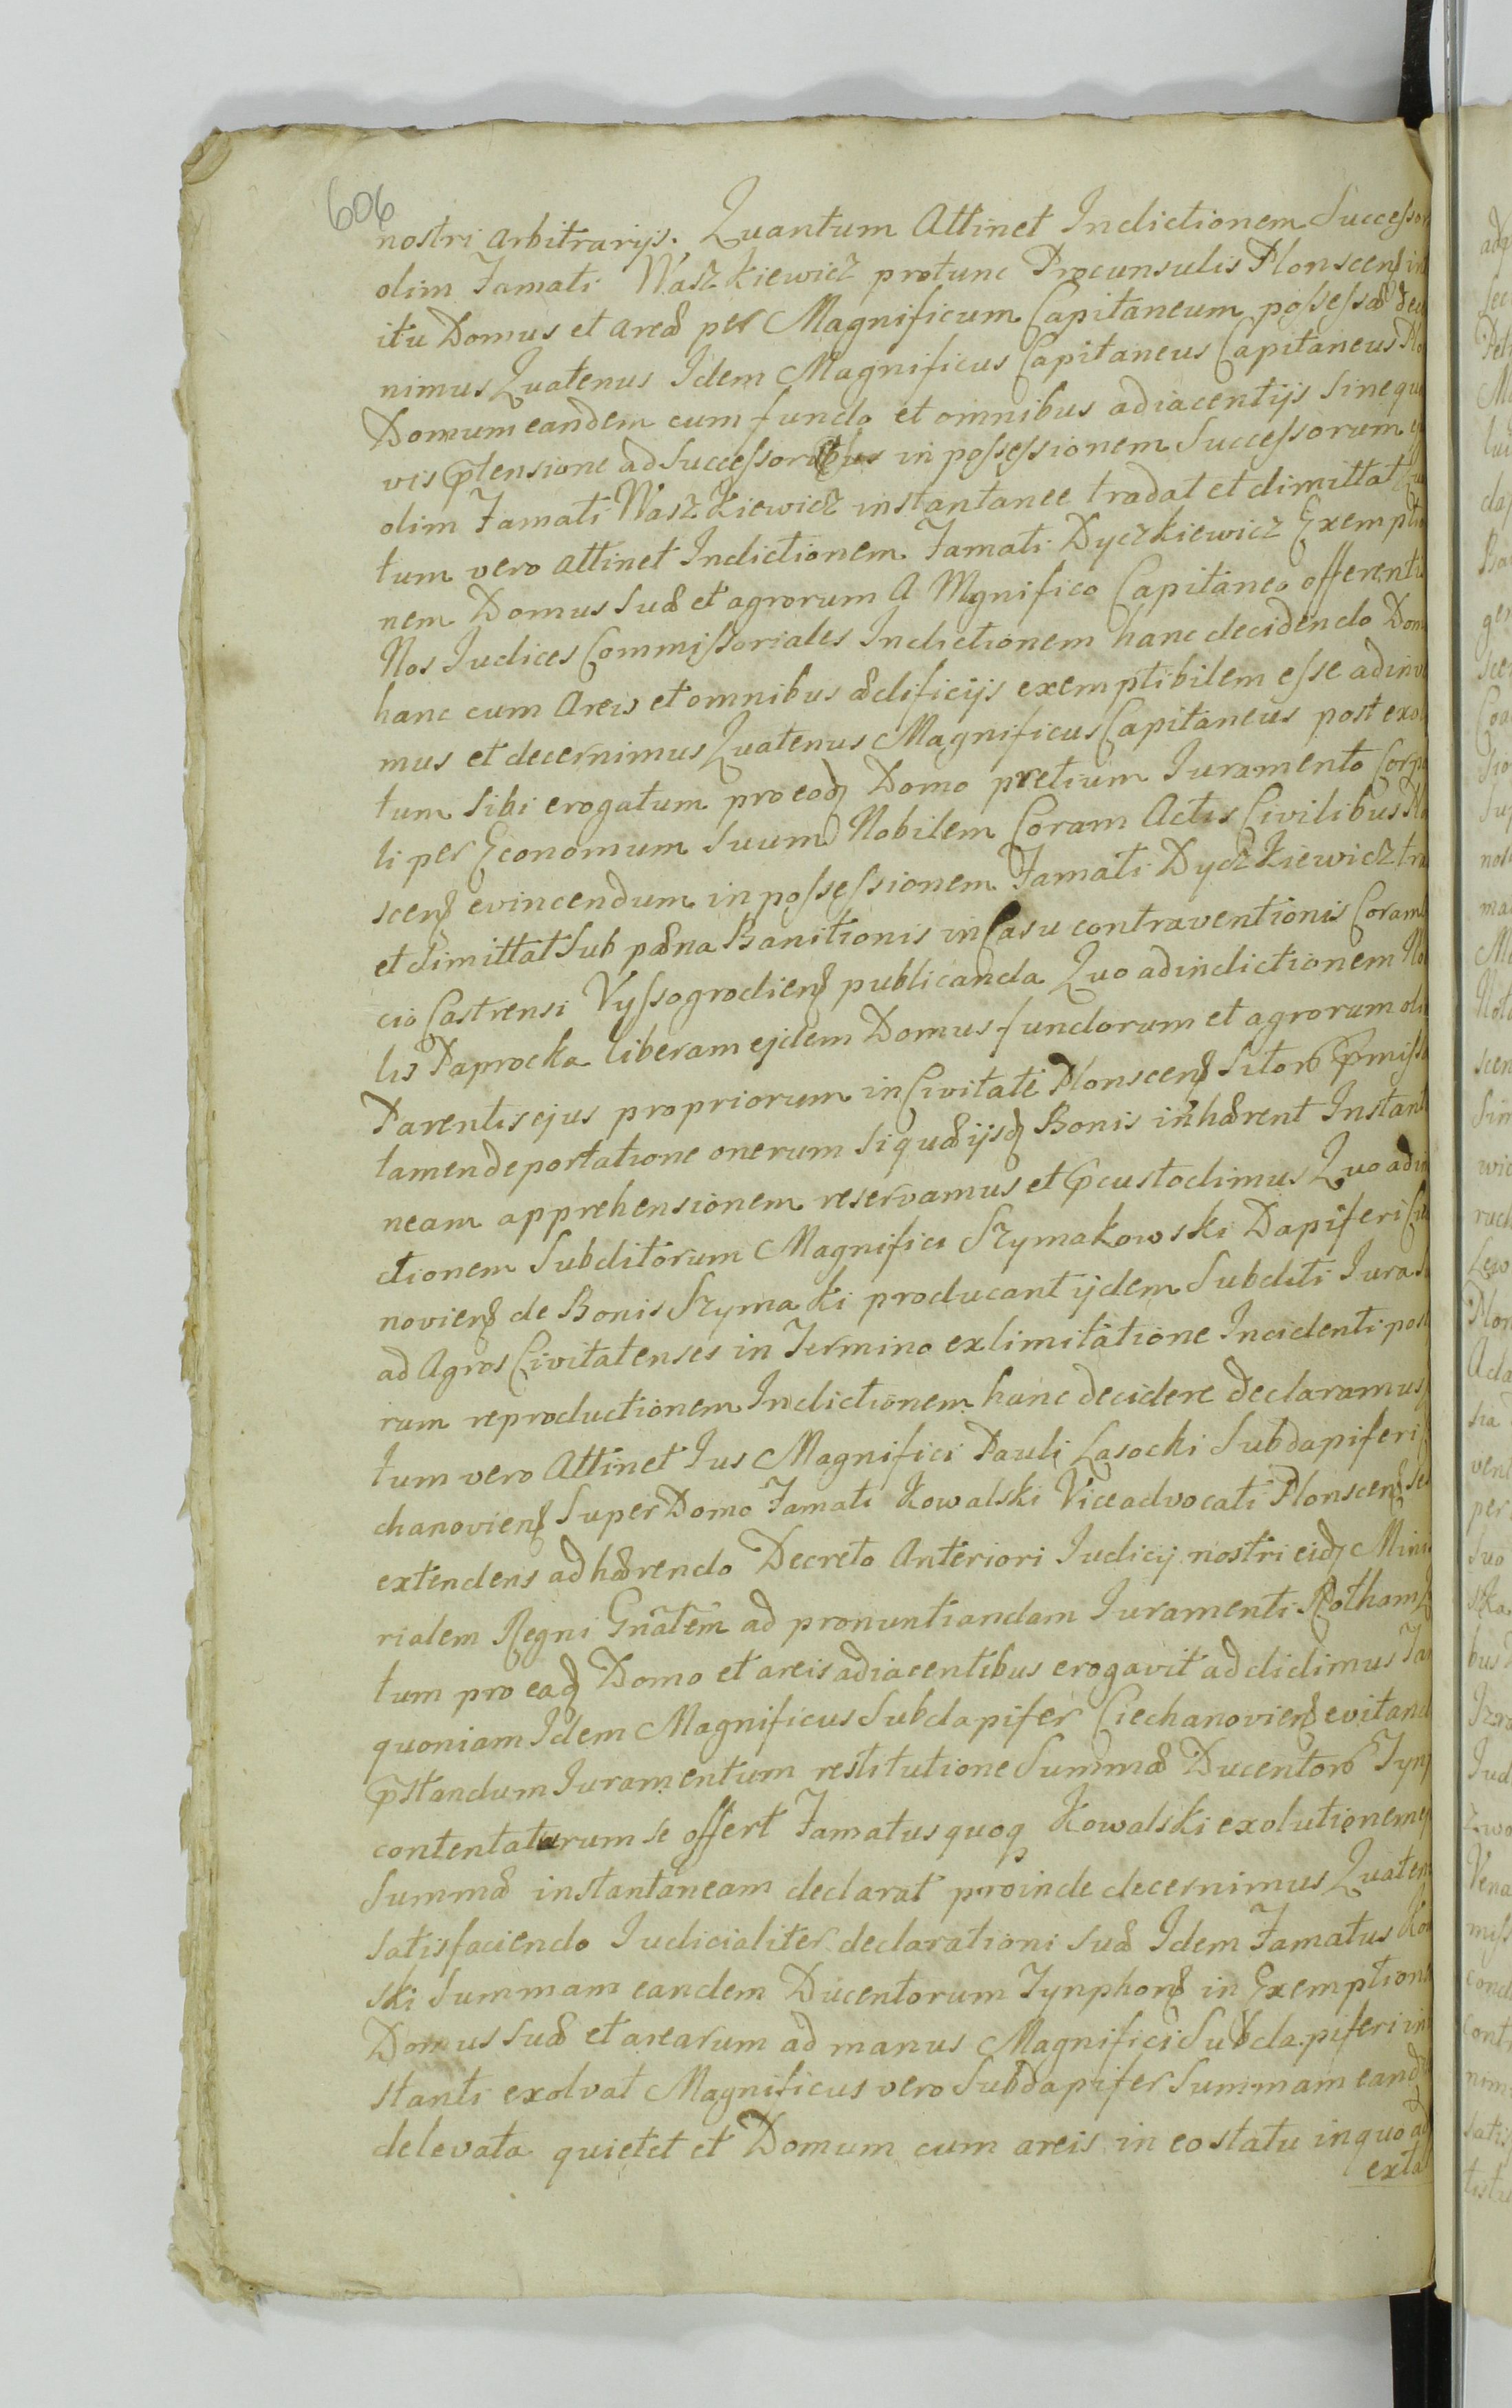 606
nostri arbitrarijs. Quantum Attinet Indictionem Successor
olim Famati Waszkiewicz protunc Procunsulis Plonscens in
itu Domus et areæ per Magnificum Capitaneum possessæ dec
nimus Quatenus Idem Magnificus Capitaneus Capitaneus Plo
Domum eandem cum fundo et omnibus adiacentijs sine qu
vis prætensione ad Successoribus in possessionem Successorum
olim Famati Waszkiewicz instantanee tradat et dimittat
tum vero attinet Indictionem Famati Dyczkiewicz Exemptio
nem Domus suæ et agrorum A Mgnifico Capitaneo offerenti
Nos Iudices Commissoriales Indictionem hanc decidendo Dom
hanc cum Areis et omnibus ædificijs exemptibilem esse adinve
mus et decernimus Quatenus Magnificus Capitaneus post exol
tum sibi erogatum pro eadem Domo pretium Iuramento Corpo
li per Economum suum Nobilem Coram Actis Civilibus Plo
scens evincendum in possessionem Famati Dyczkiewicz tra
et dimittat sub pæna Banitionis in Casu contraventionis Coram
cio Castrensi Vyssogrodiens publicanda Quo ad indictionem No
lis Paprocka liberam ejdem Domus fundorum et agrorum oli
Parentis ejus propriorum in Civitate Plonscens sitor præmissa
tamen deportatione onerum si quæ ijsdem Bonis inhærent Instant
neam apprehensionem reservamus et præcustodimus Quo ad in
ctionem Subditorum Magnifici Szymakowski Dapiferi Cie
noviens de Bonis Szymaki producant ijdem Subditi Iura s
ad Agros Civitatenses in Termino ex limitatione Incidenti post
rum reproductionem Indictionem hanc decidere declaramus
tum vero Attinet Ius Magnifici Pauli Lasocki Subdapiferi
chanoviens super Domo Famati Kowalski Viceadvocati Plonscens se
extendens adhærendo Decreto Anteriori Iudicij nostri eidem Mini
rialem Regni Gnãlem ad pronuntiandam Iuramenti Rotham
tum pro eadem Domo et areis adiacentibus erogavit addidimus Ta
quoniam Idem Magnificus Subdapifer Ciechanoviens evitand
præstandum Iuramentum restitutione summæ Ducentor Tynp
contentaturum se offert Famatus quoq Kowalski exolutionem ej
summæ instantaneam declarat proinde decernimus Quaten
satisfaciendo Iudicialiter declarationi suæ Idem Famatus Ko
ski summam eandem Ducentorum Tynphons in Exemptione
Domus suæ et arearum ad manus Magnifici Subdapiferi in
stanti exolvat Magnificus vero Subdapifer summam eand
delevata quietet et Domum cum areis in eo statu in quo ad
exta